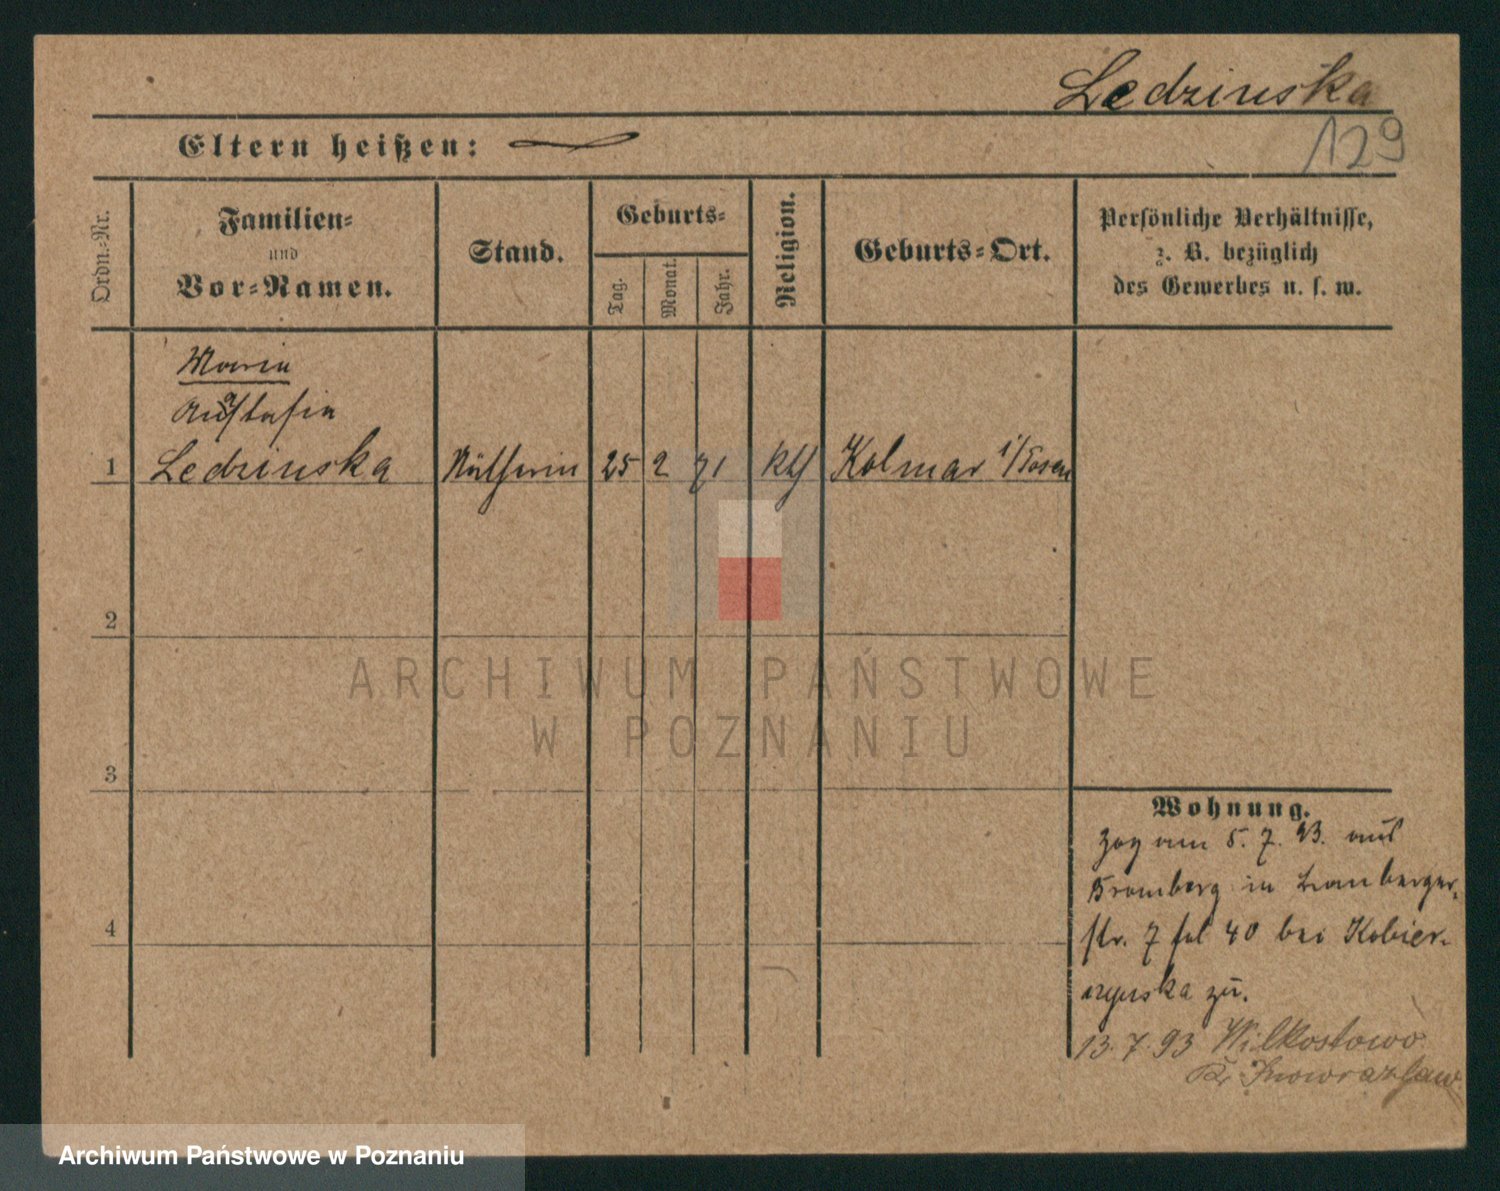 Ledzinska
129
Eltern heißen:
Ordn.-Nr.
Familien-
und
Vor-Namen.
Stand.
Geburts-
Tag.
Monat.
Jahr.
Religion.
Geburts-Ort.
Persönliche Verhältnisse,
z. B. bezüglich
des Gewerbes u. s. w.
Maria
1 Ledzinska 25 2 71 kth Kolmar i/Posen
2
3
4
Wohnung.
Zog am 5. 7. 93. aus
Bromberg in
str. 7 fol 40 bei Kobier-
zynska zu.
13. 7. 93 Wilkostowo
Kr. Inowrazlaw
ARCHIWUM PAŃSTWOWE
W POZNANIU
Archiwum Państwowe w Poznaniu